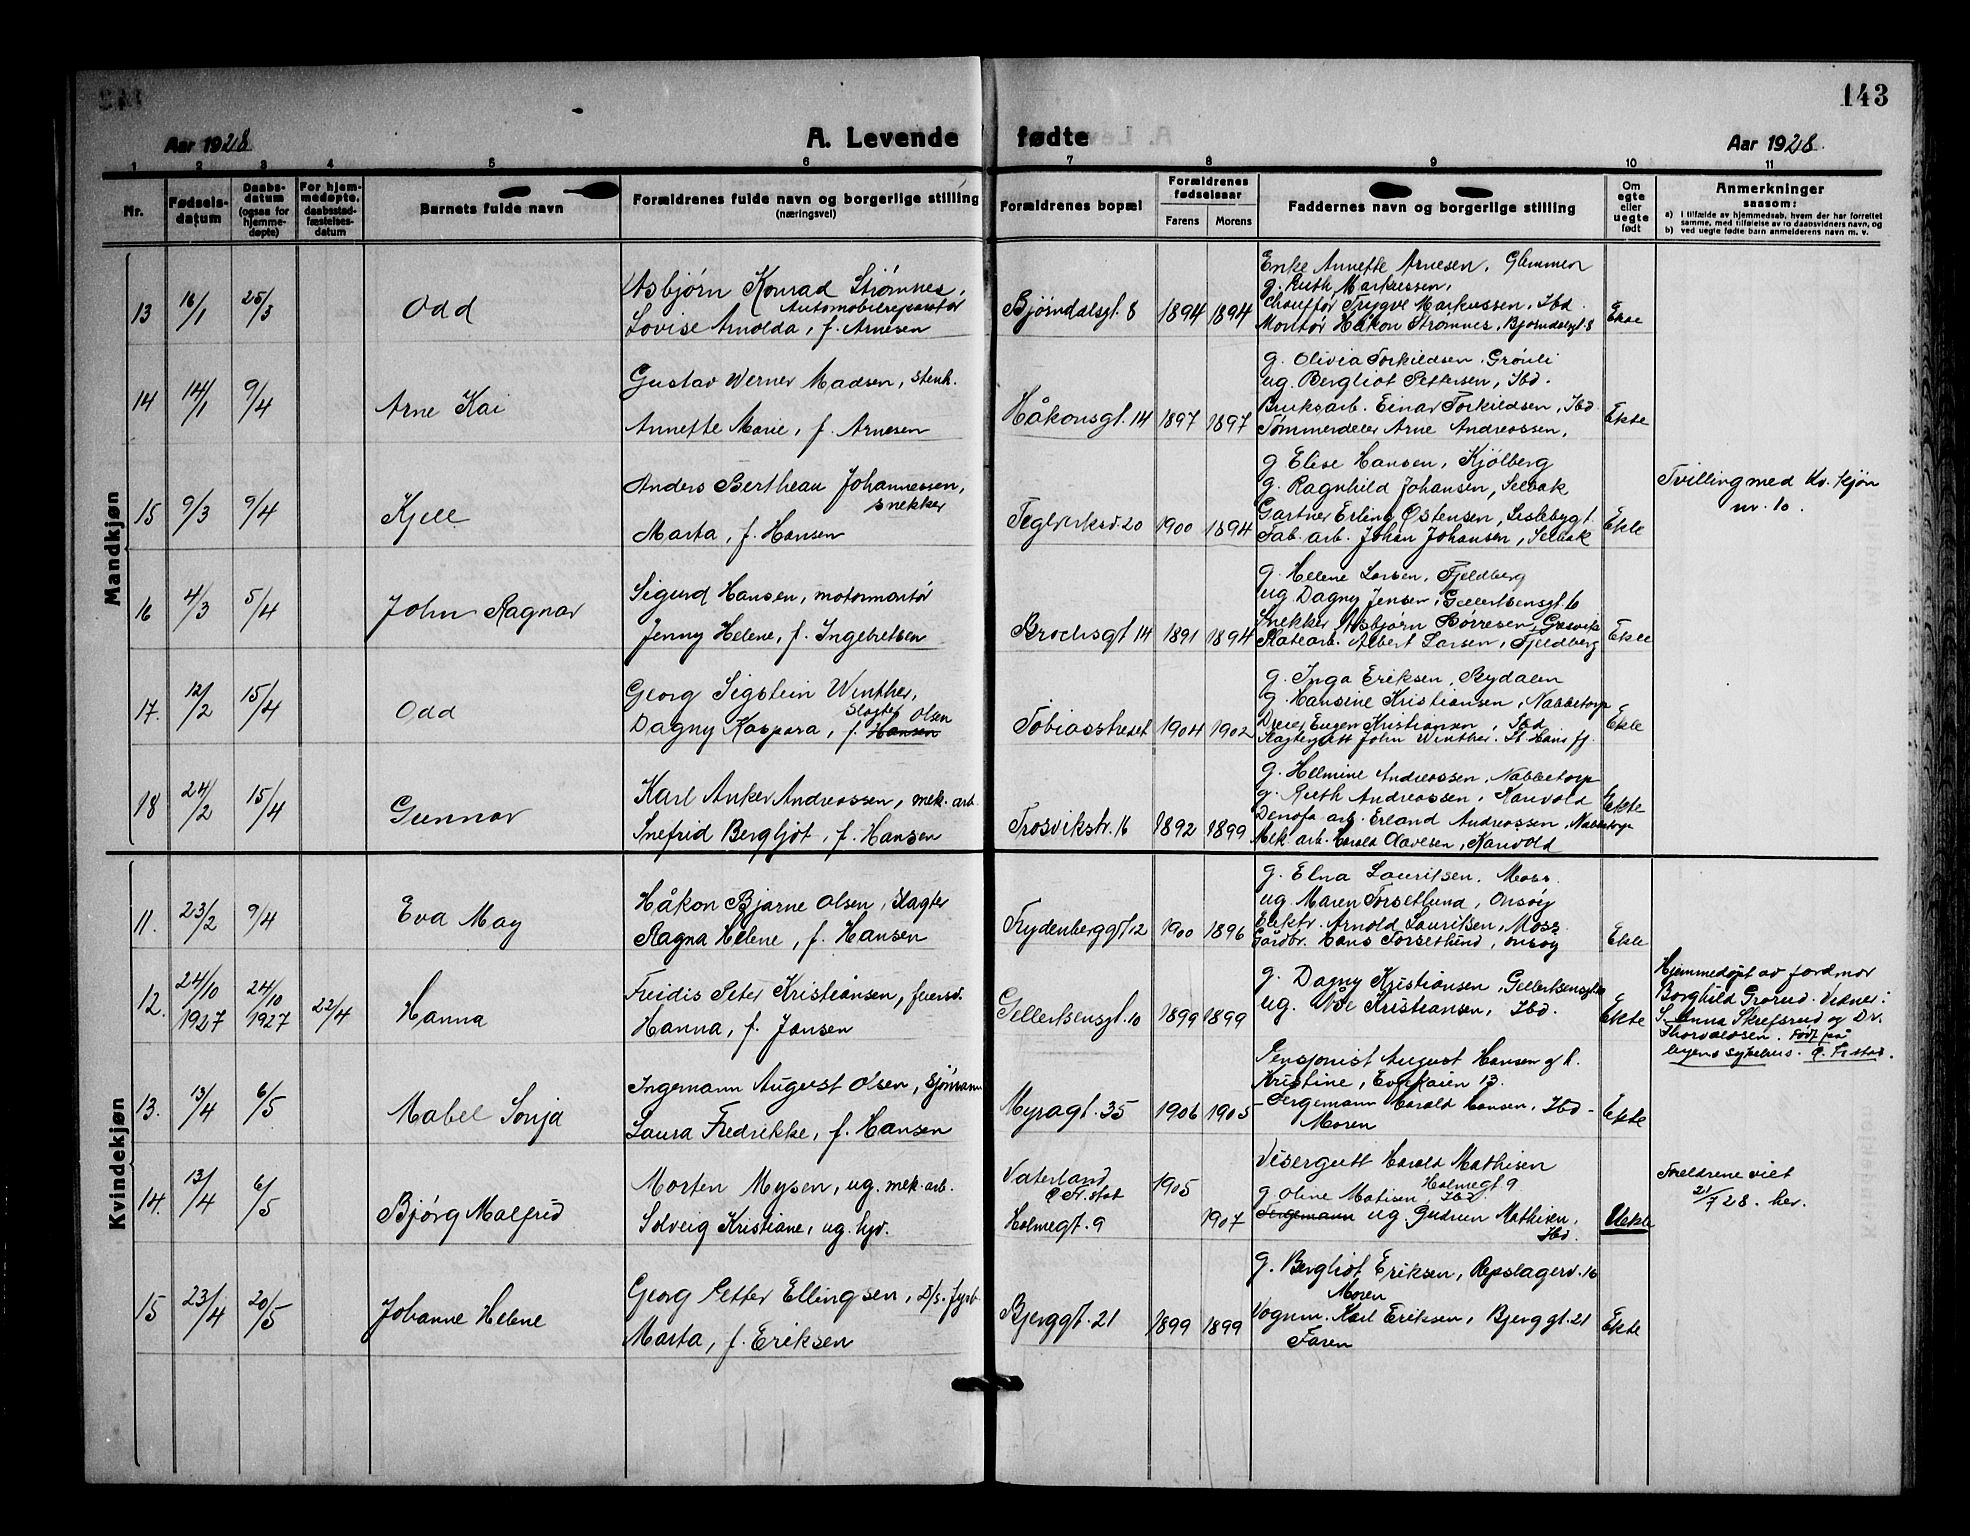 143
Aar 1928
A. Levende fødte
Aar 1928.
1 2 3 4 5 6 7 8 9 10 11
Nr.
Fødsels-
datum
Daabs-
datum
(ogsaa for
hjemme-
døpte)
For hjem-
medøpte,
daabsstad-
fæstelses-
datum
Barnets fulde navn
Forældrenes fulde navn og borgerlige stilling
(næringsvei)
Forældrenes bopæl
Forældrenes
fødselsaar
Farens Morens
Faddernes navn og borgerlige stilling
Om
egte
eller
uegte
født
Anmerkninger
saasom:
a) I tilfælde av hjemmedaab, hvem der har forrettet
samme, med tilføielse av to daabsvidners navn, og
b) ved uegte fødte barn anmelderens navn m. v.
Mandkjøn
13 16/1 25/3 Odd
Asbjørn Konrad Strømnes,
Automobilreparatør
Lovise Arnolda, f. Arnesen
Bjørndalsgt. 8 1894 1894
Enke Annette Arnesen, Glemmen
g. Ruth Markussen,
Chauffør Trygve Markussen, Ibd.
Montør Håkon Strømnes, Bjørndalsgt. 8
Ekte
14 14/1 9/4 Arne Kai
Gustav Werner Madsen, stenh.
Annette Marie, f. Arnesen
Håkonsgt. 14 1897 1897
g. Olivia Torkildsen, Grønli
ug. Bergliot Pettersen, Ibd.
Bruksarb. Einar Torkildsen, Ibd.
Tømmerdeler Arne Andreassen,
Ekte
15 9/3 9/4 Kjell
Anders Bertheau Johannessen,
snekker
Marta, f. Hansen
Teglverksv. 20 1900 1894
g. Elise Hansen, Kjølberg
g. Ragnhild Johansen, Selbak
Gartner Erling Østensen, Lislebygt.
Fab. arb. Johan Johansen, Selbak
Ekte
Tvilling med Kv. kjøn
nr. 10.
16 4/3 5/4 John Ragnar
Sigurd Hansen, motormontør
Jenny Helene, f. Ingebretsen
Brochsgt. 14 1891 1894
g. Helene Larsen, Fjeldberg
ug. Dagny Jensen, Gellertsensgt. 6
Snekker Asbjørn Børresen, Gresvik
Platearb. Albert Larsen, Fjeldberg
Ekte
17. 12/2 15/4 Odd
Georg Sigstein Winther,
Slagter
Dagny Kaspara, f. Hansen Olsen
Tobiasstredet 1904 1902
g. Inga Eriksen, Rydalen
g. Hansine Kristiansen, Nabbetorp
Dreier Eugen Kristiansen, Ibd.
Slagtergutt John Winther, St. Hans fj.
Ekte
18 24/2 15/4 Gunnar
Karl Anker Andreassen, mek. arb.
Snefrid Bergljot, f. Hansen
Trosvikstr. 16 1892 1899
g. Helmine Andreassen, Nabbetorp
g. Ruth Andreassen, Kanvold
Denofa arb. Erland Andreassen, Nabbetorp
Mek. arb. Harald Clavesen, Kanvold
Ekte
Kvindekjøn
11. 23/2 9/4 Eva May
Håkon Bjarne Olsen, Slagter
Ragna Helene, f. Hansen
Frydenberggt. 12 1900 1896
g. Elna Lauritsen, Moss
ug. Maren Forsetlund, Onsøy
Elektr. Arnold Lauritsen, Moss
Gårdbr. Hans Forsetlund, Onsøy
Ekte
12. 24/10 1927 24/10 1927 22/4 Hanna
Freidis Peter Kristiansen, feiersv.
Hanna, f. Jansen
Gellertsensgt. 10 1899 1899
g. Dagny Kristiansen, Gellertsensgt. 10
ug. Kristiansen, Ibd.
Ekte
Hjemmedøpt av jordmor
Borghild Grorud. Vidner:
S. Anna Skrefsrud og Dr.
Thorvaldsen. Født på
byens sykehus. Fr.stad.
13. 13/4 6/5 Mabel Sonja
Ingemann August Olsen, sjømann
Laura Fredrikke, f. Hansen
Myragt. 35 1906 1905
Pensjonist August Hansen og h.
Kristine, Evjekaien 13.
Fergemann Harald Hansen, Ibd.
Moren
Ekte
14. 13/4 6/5 Bjørg Malfrid
Morten Mysen, ug. mek. arb.
Solveig Kristiane, ug. hjv.
Vaterland 1905
Fr.stad
Holmegt. 9 1907
Visergutt Harald Mathisen
Holmegt 9
g. Oline Matisen, Ibd.
Fergemann ug. Gudrun Mathisen,
Ibd.
Uekte
Foreldrene viet
21/7 28. her.
15 23/4 20/5 Johanne Helene
Georg Petter Ellingsen, D/s. fyrb.
Marta, f. Eriksen
Bjerggt. 21 1899 1899
g. Bergliot Eriksen, Repslagerv. 16
Moren
Vognm. Karl Eriksen, Bjerggt. 21
Faren
Ekte